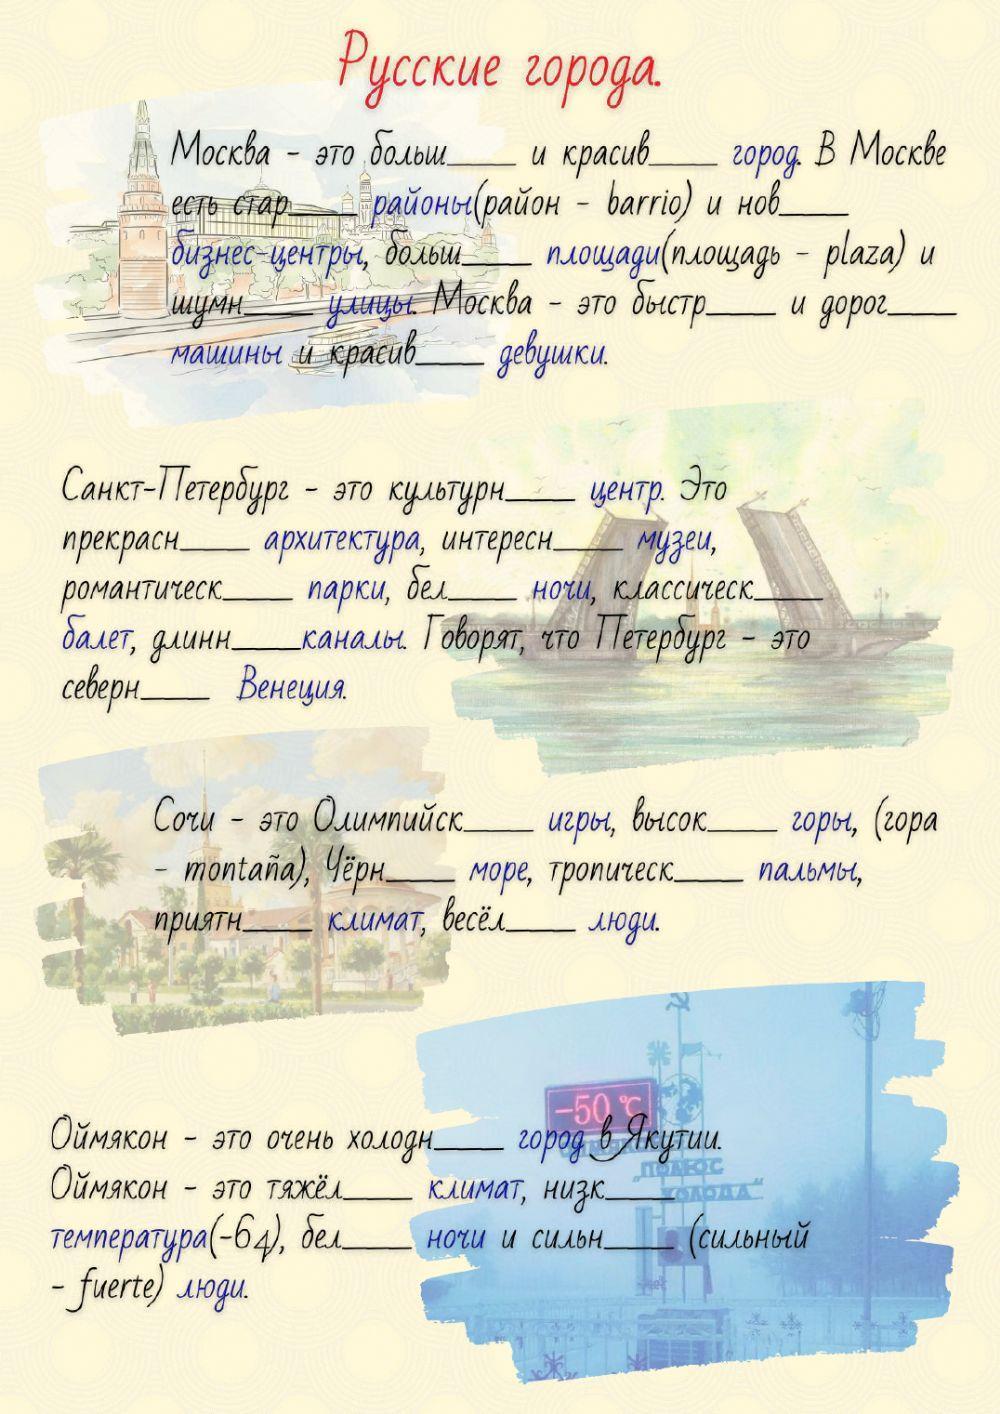 Русские города.
Москва - это больш____ и красив____ город. В Москве
есть стар____ районы(район - barrio) и нов____
бизнес-центры, больш____ площади(площадь - plaza) и
шумн____ улицы. Москва - это быстр____ и дорог____
машины и красив____ девушки.
Санкт-Петербург - это культурн____ центр. Это
прекрасн____ архитектура, интересн____ музеи,
романтическ____ парки, бел____ ночи, классическ____
балет, длинн____каналы. Говорят, что Петербург - это
северн____ Венеция.
Сочи - это Олимпийск____ игры, высок____ горы, (гора
- montaña), Чёрн____ море, тропическ____ пальмы,
приятн____ климат, весёл____ люди.
-50 °C
Оймякон - это очень холодн____ город в Якутии.
"ПОЛЮС
ХОЛОДА"
Оймякон - это тяжёл____ климат, низк____
температура(-64), бел____ ночи и сильн____ (сильный
- fuerte) люди.